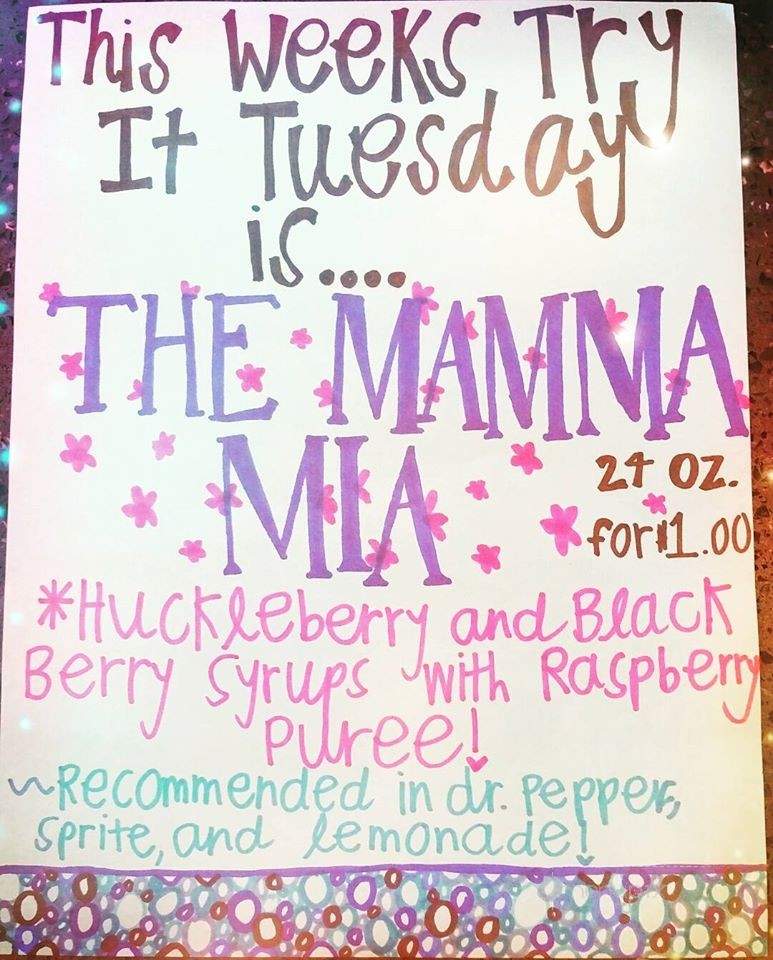 This Weeks Try
It Tuesday
is....
THE MAMMA
MIA
24 oz.
for $1.00
*Huckleberry and Black
Berry Syrups with Raspberry
puree!
~Recommended in dr. pepper,
sprite, and lemonade!